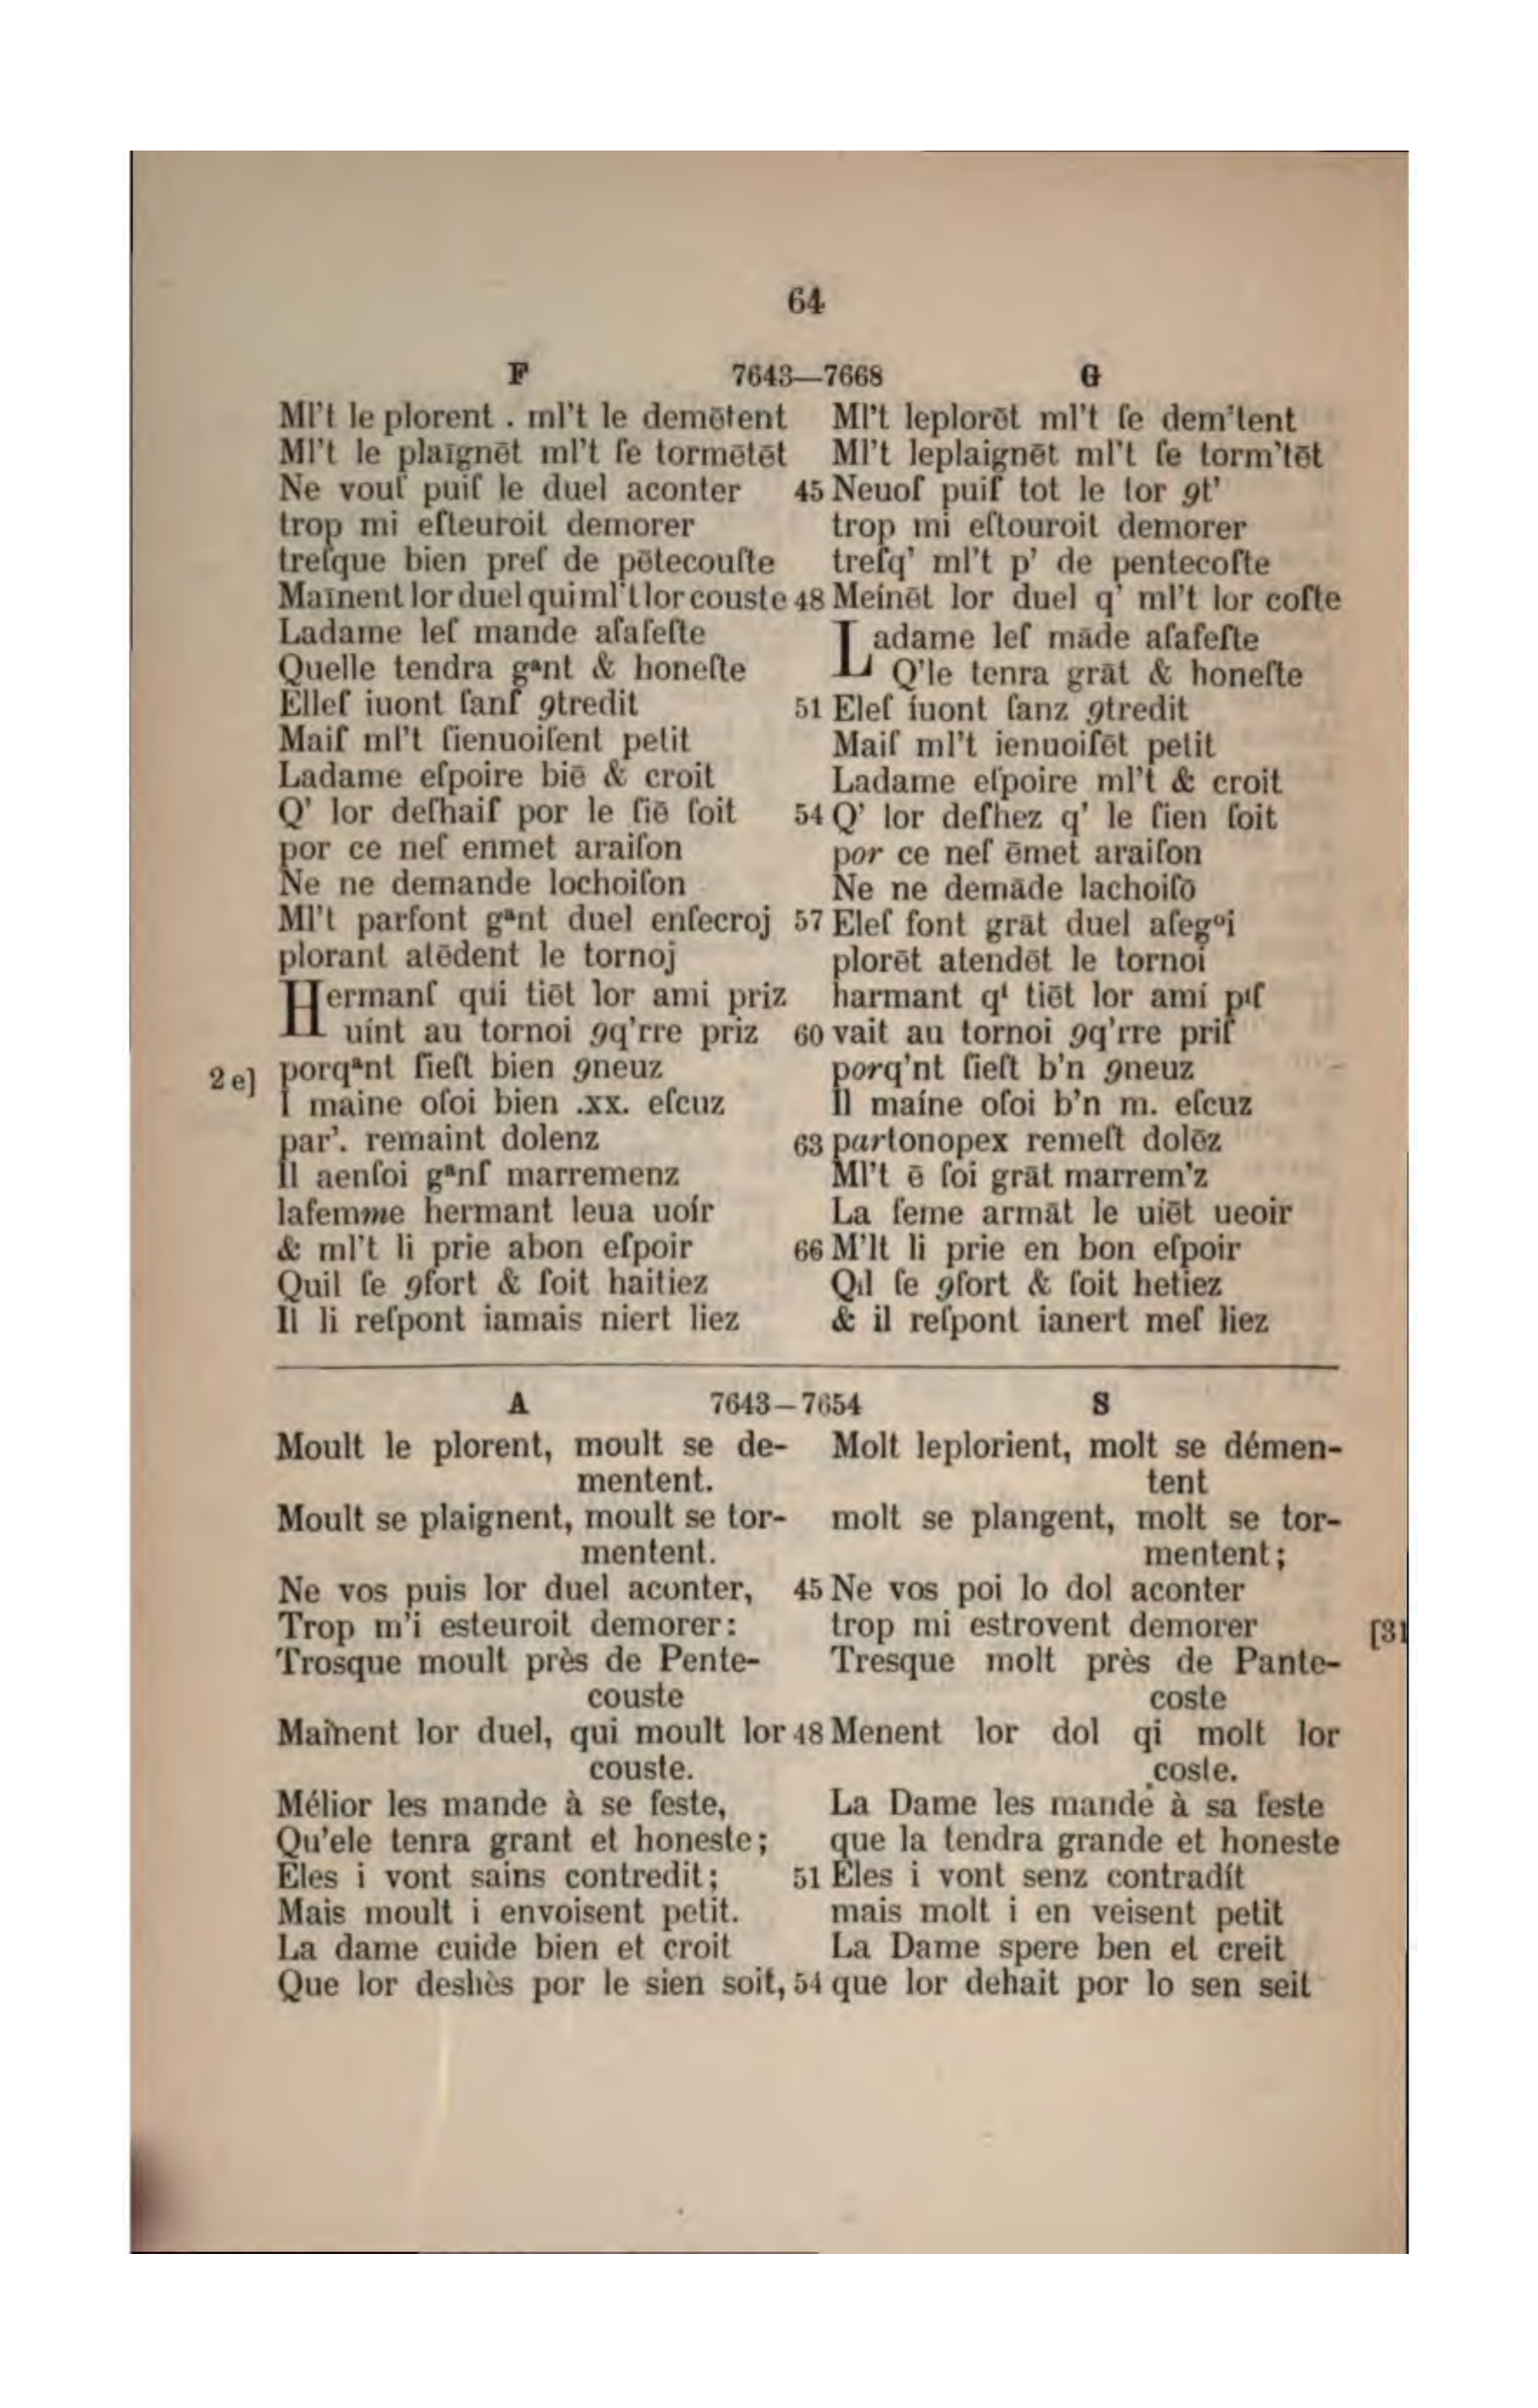 64
F 7643—7668 G
Ml't le plorent . ml't le demētent
Ml't le plaīgnēt ml't ſe tormētēt
Ne vouſ puiſ le duel aconter
trop mi eſteuroit demorer
treſque bien preſ de pētecouſte
Maīnent lor duel qui ml't lor couste
Ladame leſ mande aſafeſte
Quelle tendra gᵃnt & honeſte
Elleſ iuont ſanſ 9tredit
Maiſ ml't ſienuoiſent petit
Ladame eſpoire biē & croit
Q' lor deſhaiſ por le ſiē ſoit
por ce neſ enmet araiſon
Ne ne demande lochoiſon
Ml't parfont gᵃnt duel enſecroj
plorant atēdent le tornoj
Hermanſ qui tiēt lor ami priz
uínt au tornoi 9q'rre priz
2 e] porqᵃnt ſieſt bien 9neuz
I maine oſoi bien .xx. eſcuz
par'. remaint dolenz
Il aenſoi gᵃnſ marremenz
lafemme hermant leua uoír
& ml't li prie abon eſpoir
Quil ſe 9fort & ſoit haitiez
Il li reſpont iamais niert liez
Ml't leplorēt ml't ſe dem'tent
Ml't leplaignēt ml't ſe torm'tēt
45 Neuoſ puiſ tot le lor 9t'
trop mi eſtouroit demorer
treſq' ml't p' de pentecoſte
48 Meínēt lor duel q' ml't lor coſte
Ladame leſ māde aſafeſte
Q'le tenra grāt & honeſte
51 Eleſ íuont ſanz 9tredit
Maiſ ml't ienuoiſēt petit
Ladame eſpoire ml't & croit
54 Q' lor deſhez q' le ſien ſoit
por ce neſ ēmet araiſon
Ne ne demāde lachoiſō
57 Eleſ font grāt duel aſegᵒi
plorēt atendēt le tornoi
harmant qⁱ tiēt lor amí pⁱſ
60 vait au tornoi 9q'rre priſ
porq'nt ſieſt b'n 9neuz
Il maíne oſoi b'n m. eſcuz
63 partonopex remeſt dolēz
Ml't ē ſoi grāt marrem'z
La feme armāt le uiēt ueoir
66 M'lt li prie en bon eſpoir
Qıl ſe 9fort & ſoit hetiez
& il reſpont ianert meſ liez
A 7643–7654 S
Moult le plorent, moult se de-
mentent.
Moult se plaignent, moult se tor-
mentent.
Ne vos puis lor duel aconter,
Trop m'i esteuroit demorer:
Trosque moult près de Pente-
couste
Mainent lor duel, qui moult lor
couste.
Mélior les mande à se feste,
Qu'ele tenra grant et honeste;
Eles i vont sains contredit;
Mais moult i envoisent petit.
La dame cuide bien et croit
Que lor deshès por le sien soit,
Molt leplorient, molt se démen-
tent
molt se plangent, molt se tor-
mentent;
45 Ne vos poi lo dol aconter
trop mi estrovent demorer [31
Tresque molt près de Pante-
coste
48 Menent lor dol qi molt lor
coste.
La Dame les mande à sa feste
que la tendra grande et honeste
51 Eles i vont senz contradít
mais molt i en veisent petit
La Dame spere ben et creit
54 que lor dehait por lo sen seit